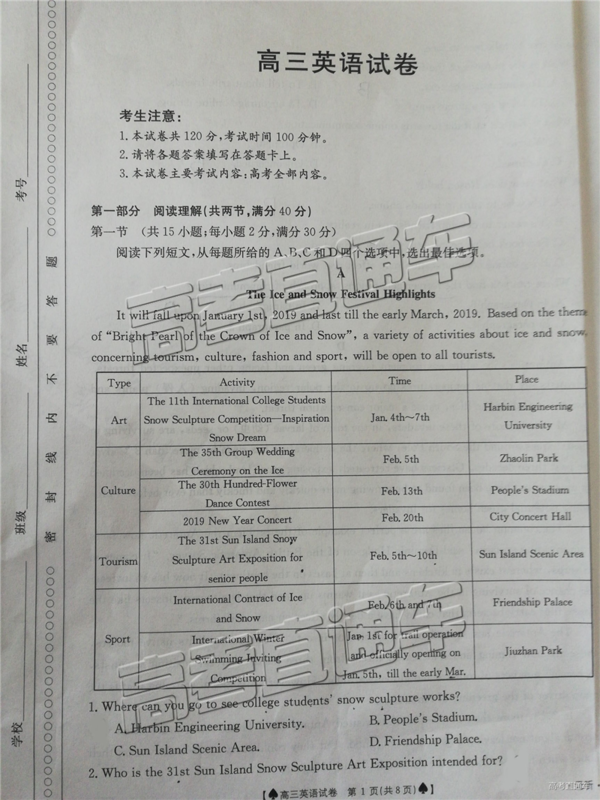 高三英语试卷
考生注意:
1.本试卷共120分,考试时间100分钟。
2.请将各题答案填写在答题卡上。
3.本试卷主要考试内容:高考全部内容。
第一部分 阅读理解(共两节,满分40分)
第一节 (共15小题;每小题2分,满分30分)
阅读下列短文,从每题所给的A、B、C和D四个选项中,选出最佳选项。
A
The Ice and Snow Festival Highlights
It will fall upon January 1st, 2019 and last till the early March, 2019. Based on the theme
of “Bright Pearl of the Crown of Ice and Snow”, a variety of activities about ice and snow,
concerning tourism, culture, fashion and sport, will be open to all tourists.
Type Activity Time Place
Art
The 11th International College Students
Snow Sculpture Competition—Inspiration
Snow Dream
Jan. 4th~7th
Harbin Engineering
University
Culture
The 35th Group Wedding
Ceremony on the Ice
Feb. 5th
Zhaolin Park
The 30th Hundred-Flower
Dance Contest
Feb. 13th
People's Stadium
2019 New Year Concert
Feb. 20th
City Concert Hall
Tourism
The 31st Sun Island Snow
Sculpture Art Exposition for
senior people
Feb. 5th~10th
Sun Island Scenic Area
Sport
International Contract of Ice
and Snow
Feb. 6th and 7th
Friendship Palace
International Winter
Swimming Inviting
Competition
Jan. 1st for trail operation
and officially opening on
Jan. 5th, till the early Mar.
Jiuzhan Park
1. Where can you go to see college students' snow sculpture works?
A. Harbin Engineering University.
B. People's Stadium.
C. Sun Island Scenic Area.
D. Friendship Palace.
2. Who is the 31st Sun Island Snow Sculpture Art Exposition intended for?
【♠高三英语试卷 第1页(共8页)♠】
学校
班级
姓名
考号
密封线内不要答题
高考直通车
高考直通车